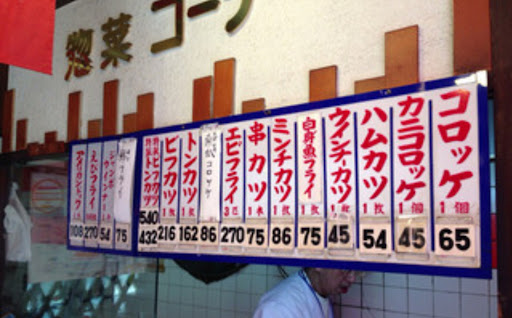 惣菜コーナー
コロッケ 1個 65
カニコロッケ 1個 45
ハムカツ 1枚 54
ウインナーカツ 1枚 45
白身魚フライ 1枚 75
ミンチカツ 1枚 86
串カツ 1本 75
エビフライ 3匹 270
コロッケ 86
トンカツ 1枚 162
ビフカツ 1枚 216
540
432
フライ 75
54
えびフライ 270
108